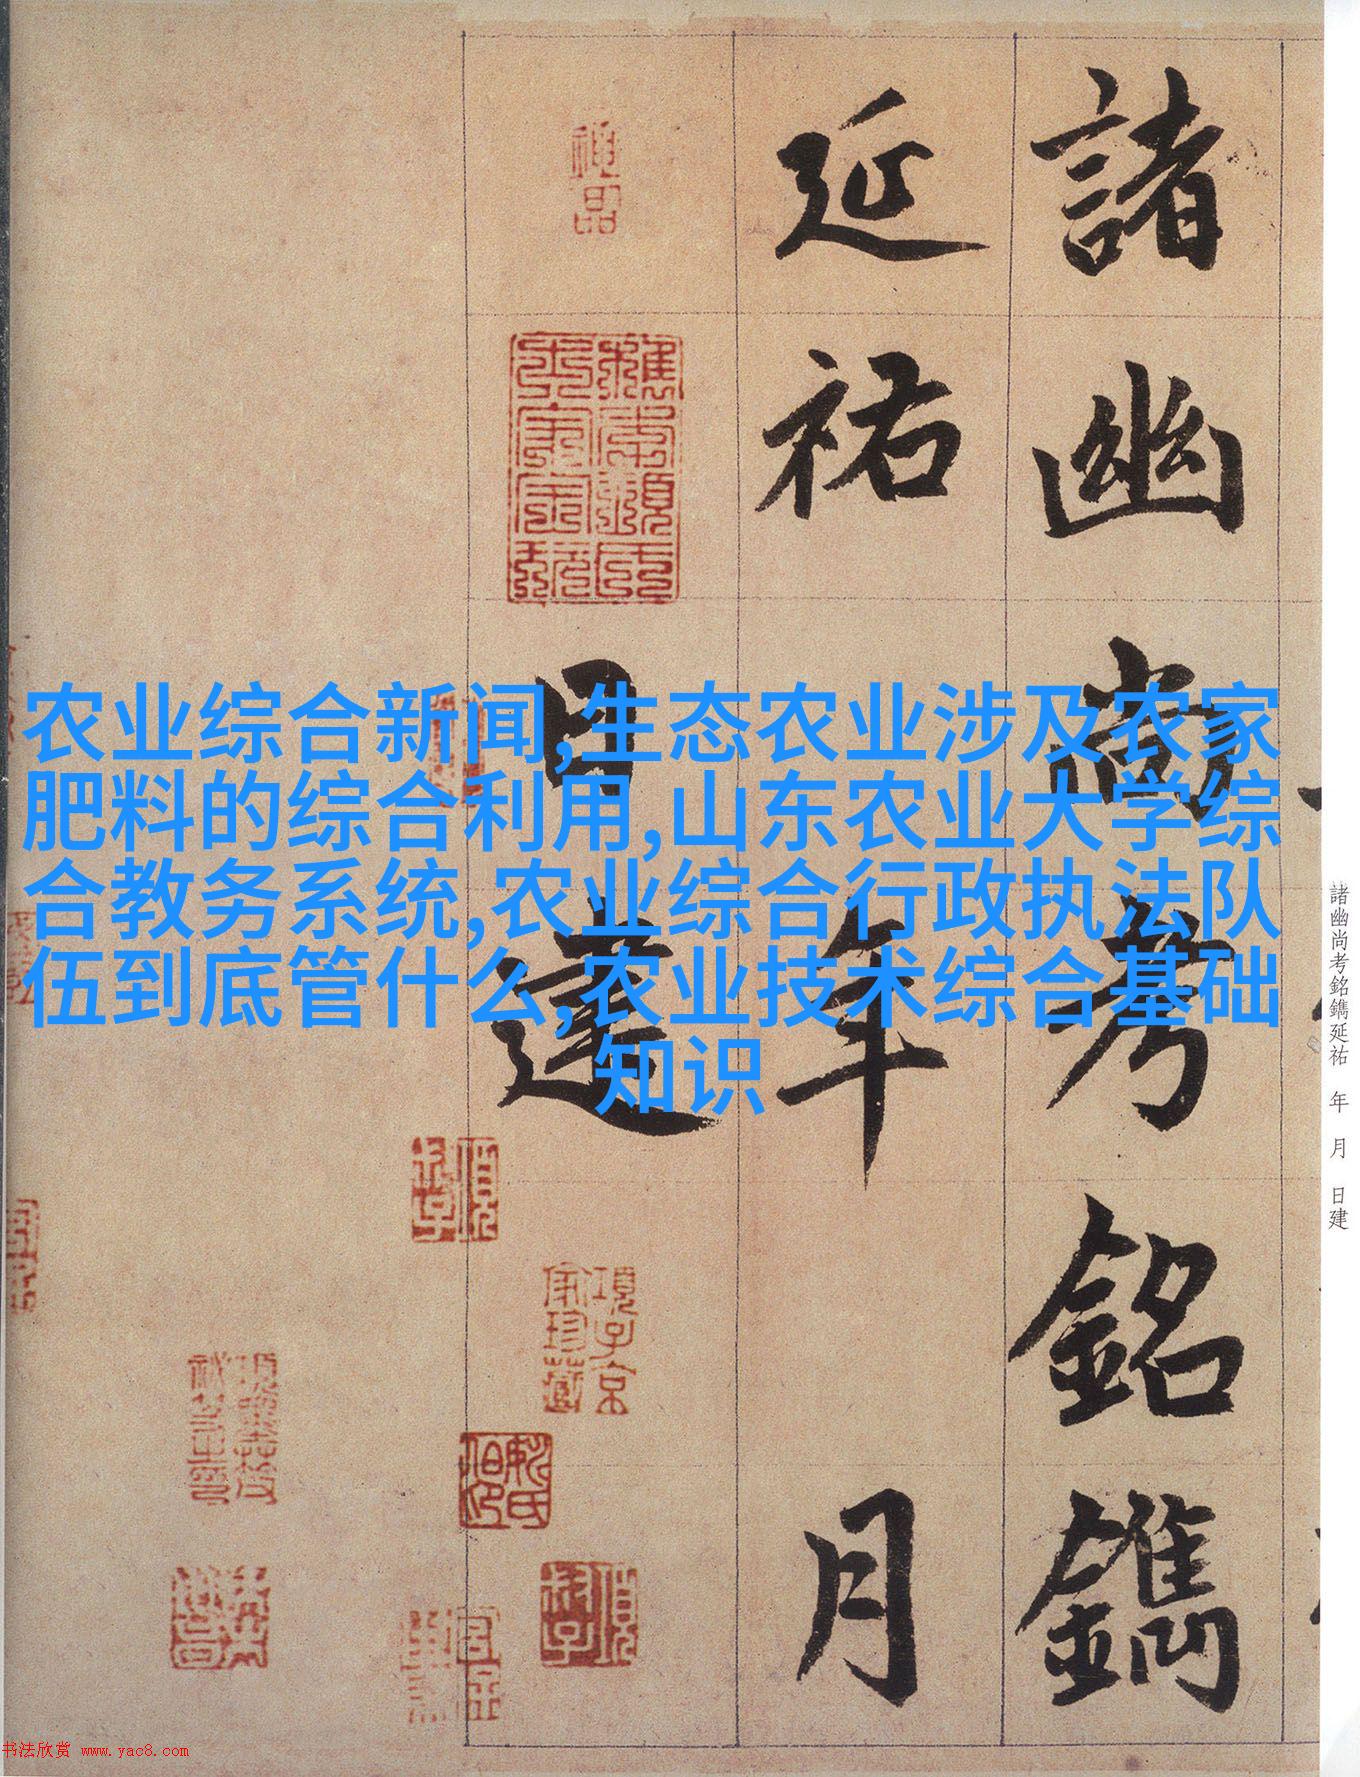 諸幽尚考銘鐫
延祐年月
日建
神品
項子京
家珍藏
农业综合新闻,生态农业涉及农家
肥料的综合利用,山东农业大学综
合教务系统,农业综合行政执法队
伍到底管什么,农业技术综合基础
知识
諸幽尚考銘鐫延祐 年 月 日建
书法欣赏 www.yac8.com